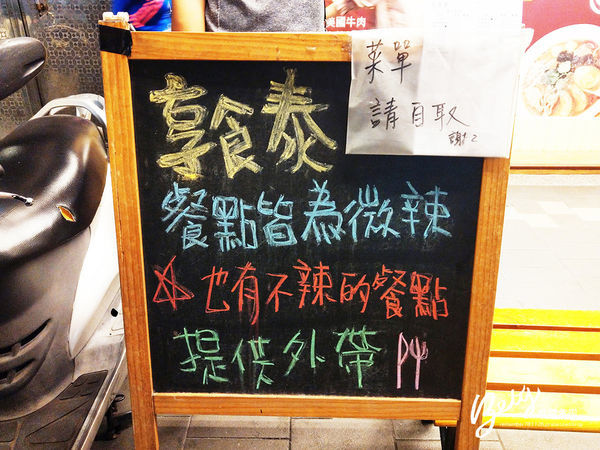 美國牛肉
菜單
請自取
謝謝
享食泰
餐點皆為微辣
☆也有不辣的餐點
提供外帶
Betty